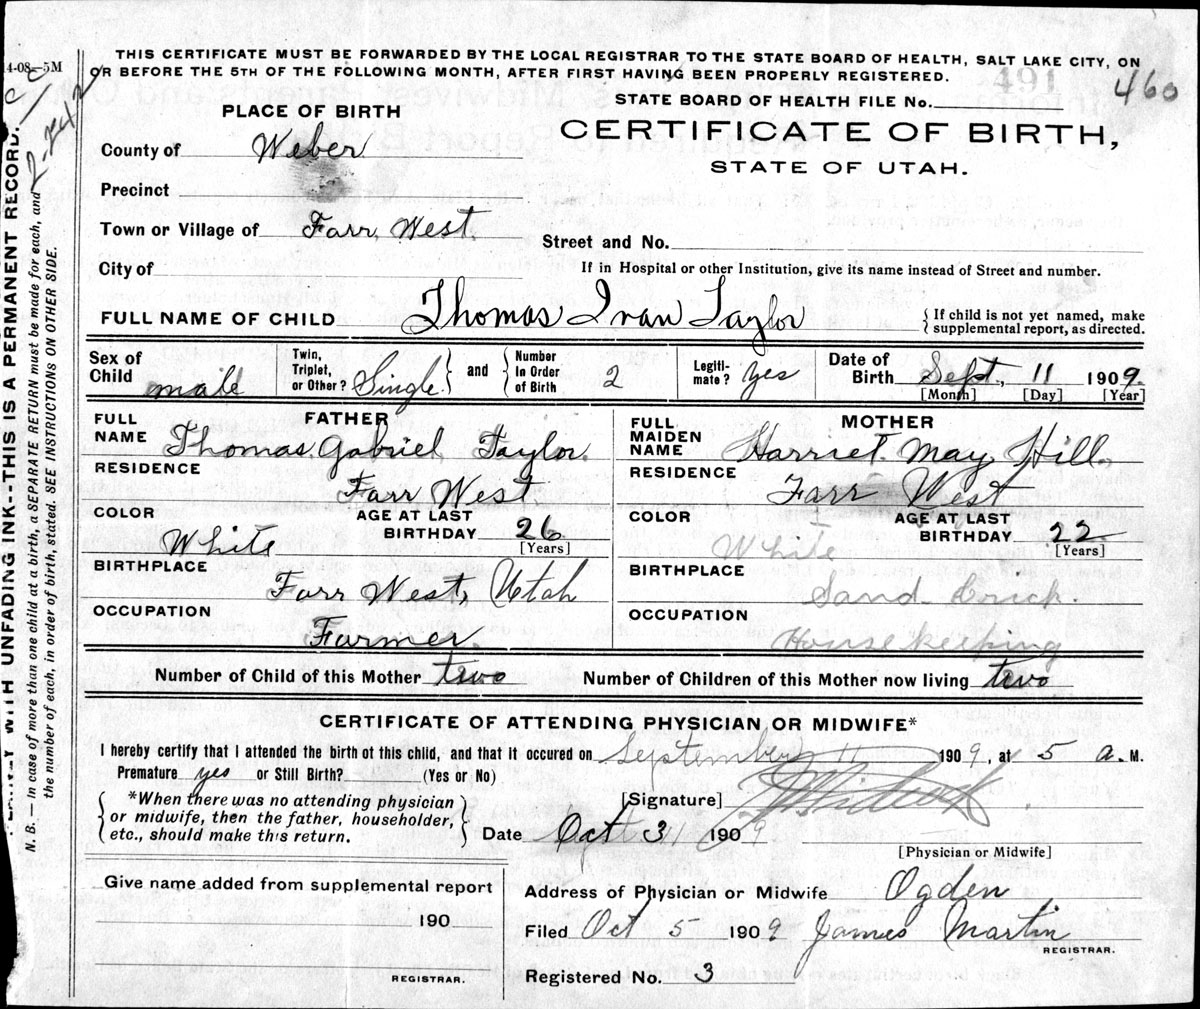 THIS CERTIFICATE MUST BE FORWARDED BY THE LOCAL REGISTRAR TO THE STATE BOARD OF HEALTH, SALT LAKE CITY, ON
OR BEFORE THE 5TH OF THE FOLLOWING MONTH, AFTER FIRST HAVING BEEN PROPERLY REGISTERED.
4-08—5M
491
460
STATE BOARD OF HEALTH FILE No.
PLACE OF BIRTH
CERTIFICATE OF BIRTH,
STATE OF UTAH.
County of Weber
Precinct
Town or Village of Farr West.
Street and No.
City of
If in Hospital or other Institution, give its name instead of Street and number.
FULL NAME OF CHILD Thomas Ivan Taylor
{ If child is not yet named, make
supplemental report, as directed.
Sex of Child male
Twin, Triplet, or Other? Single } and { Number In Order of Birth 2
Legitimate? yes
Date of Birth Sept., 11 1909.
[Month] [Day] [Year]
FATHER
FULL NAME Thomas Gabriel Taylor.
RESIDENCE Farr West
COLOR White
AGE AT LAST BIRTHDAY 26 [Years]
BIRTHPLACE Farr West, Utah
OCCUPATION Farmer.
MOTHER
FULL MAIDEN NAME Harriet May Hill.
RESIDENCE Farr West
COLOR White
AGE AT LAST BIRTHDAY 22 [Years]
BIRTHPLACE Sand Crick.
OCCUPATION Housekeeping
Number of Child of this Mother two
Number of Children of this Mother now living two
CERTIFICATE OF ATTENDING PHYSICIAN OR MIDWIFE*
I hereby certify that I attended the birth of this child, and that it occured on September 11 1909, at 5 a. M.
Premature yes or Still Birth? (Yes or No)
{ *When there was no attending physician
or midwife, then the father, householder,
etc., should make this return. }
[Signature]
Date Oct 3 1909
[Physician or Midwife]
Give name added from supplemental report
190
REGISTRAR.
Address of Physician or Midwife Ogden
Filed Oct 5 1909 James Martin
REGISTRAR.
Registered No. 3
WITH UNFADING INK--THIS IS A PERMANENT RECORD.
N. B.—In case of more than one child at a birth, a SEPARATE RETURN must be made for each, and
the number of each, in order of birth, stated. SEE INSTRUCTIONS ON OTHER SIDE.